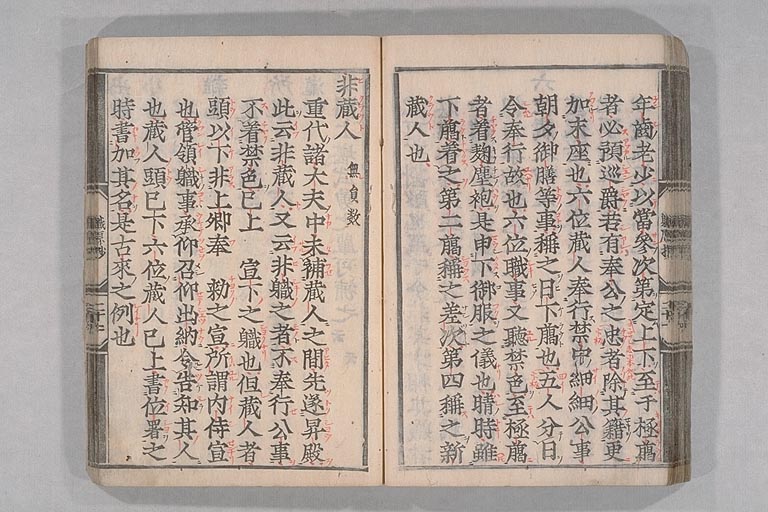 年齒老少以當參次第定上下至于極臈
者必預巡爵若有奉公之忠者除其籍更
加末座也六位藏人奉行禁中細細公事
朝夕御膳等事稱之日下臈也五人分日
令奉行故也六位職事又聽禁色至極臈
者着麴塵袍是申下御服之儀也晴時雖
下臈着之第二臈稱之差次第四稱之新
藏人也
非藏人 無員數
重代諸大夫中未補藏人之間先遂昇殿
此云非藏人又云非職之者不奉行公事
不着禁色已上 宣下之職也但藏人者
頭以下非上卿奉 勅之宣所謂內侍宣
也管領職事承仰召仰出納令告知其人
也藏人頭已下六位藏人已上書位署之
時書加其名是古來之例也